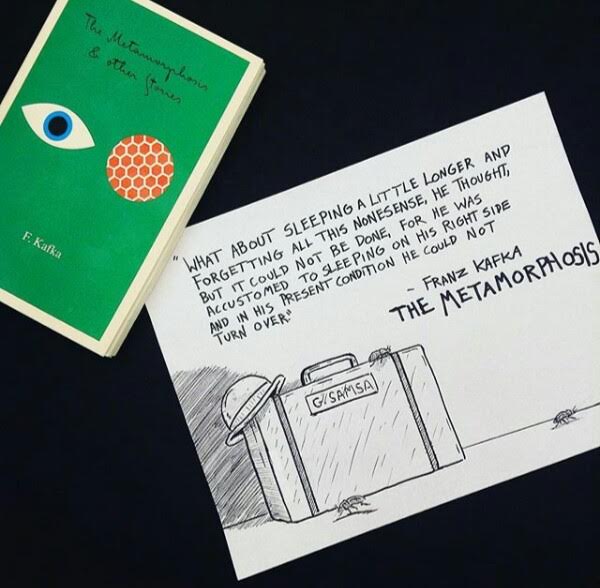 The Metamorphosis
& other Stories
F. Kafka
"WHAT ABOUT SLEEPING A LITTLE LONGER AND
FORGETTING ALL THIS NONESENSE, HE THOUGHT,
BUT IT COULD NOT BE DONE, FOR HE WAS
ACCUSTOMED TO SLEEPING ON HIS RIGHT SIDE
AND IN HIS PRESENT CONDITION HE COULD NOT
TURN OVER"
- FRANZ KAFKA
THE METAMORPHOSIS
G. SAMSA